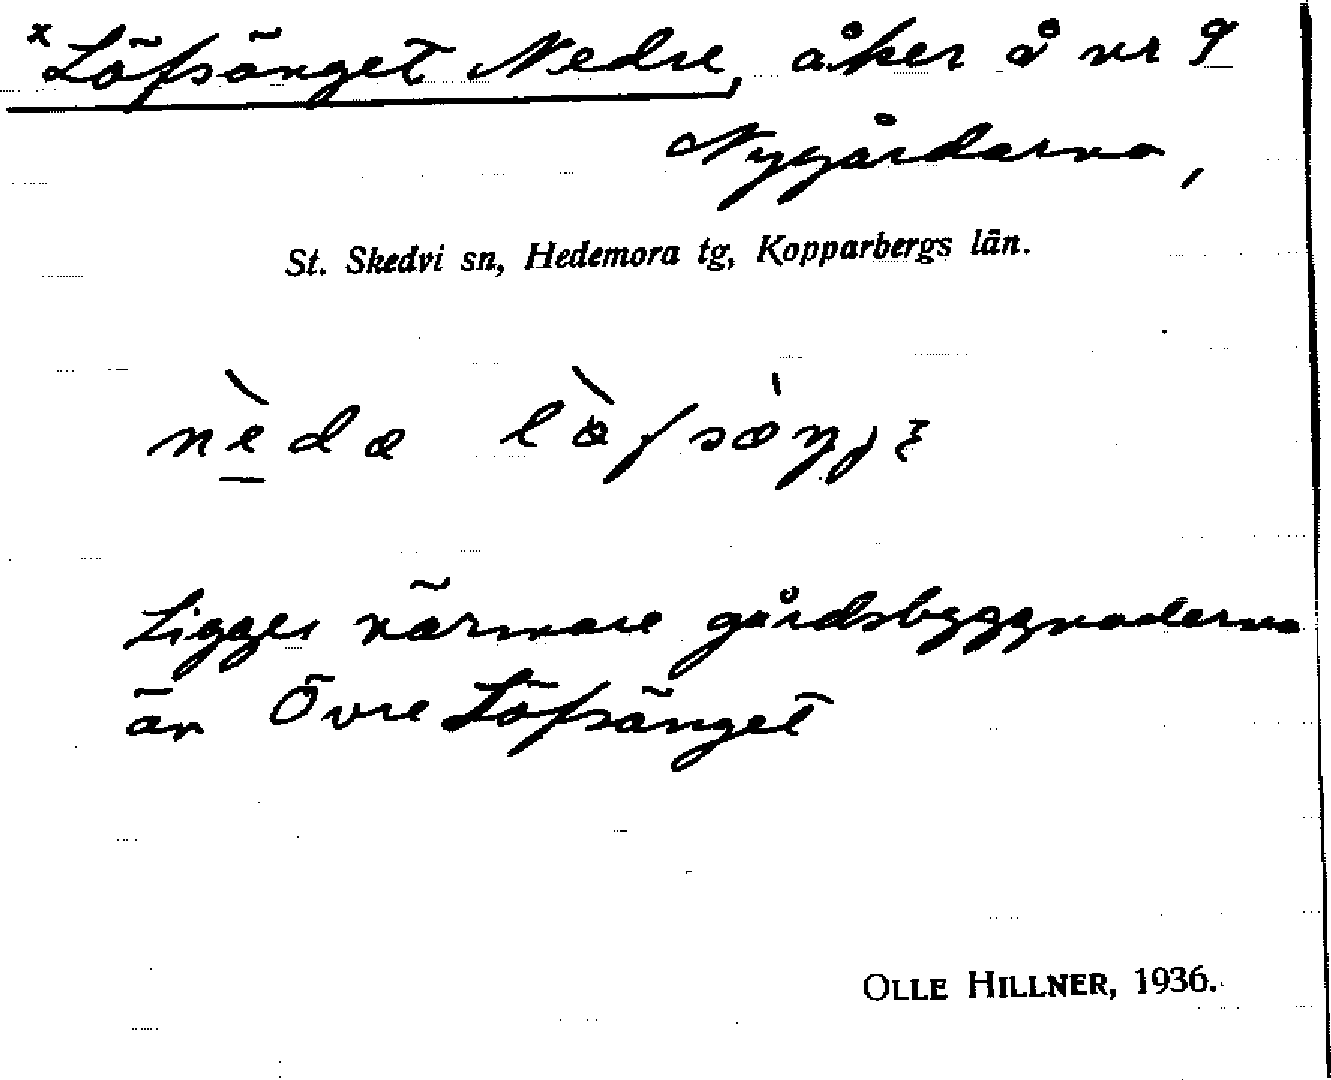 x Löfsänget Nedre, åker å nr 9
Nygårdarna,
St. Skedvi sn, Hedemora tg, Kopparbergs län.
Ligger närmare gårdsbyggnaderna
än Övre Löfsänget
OLLE HILLNER, 1936.